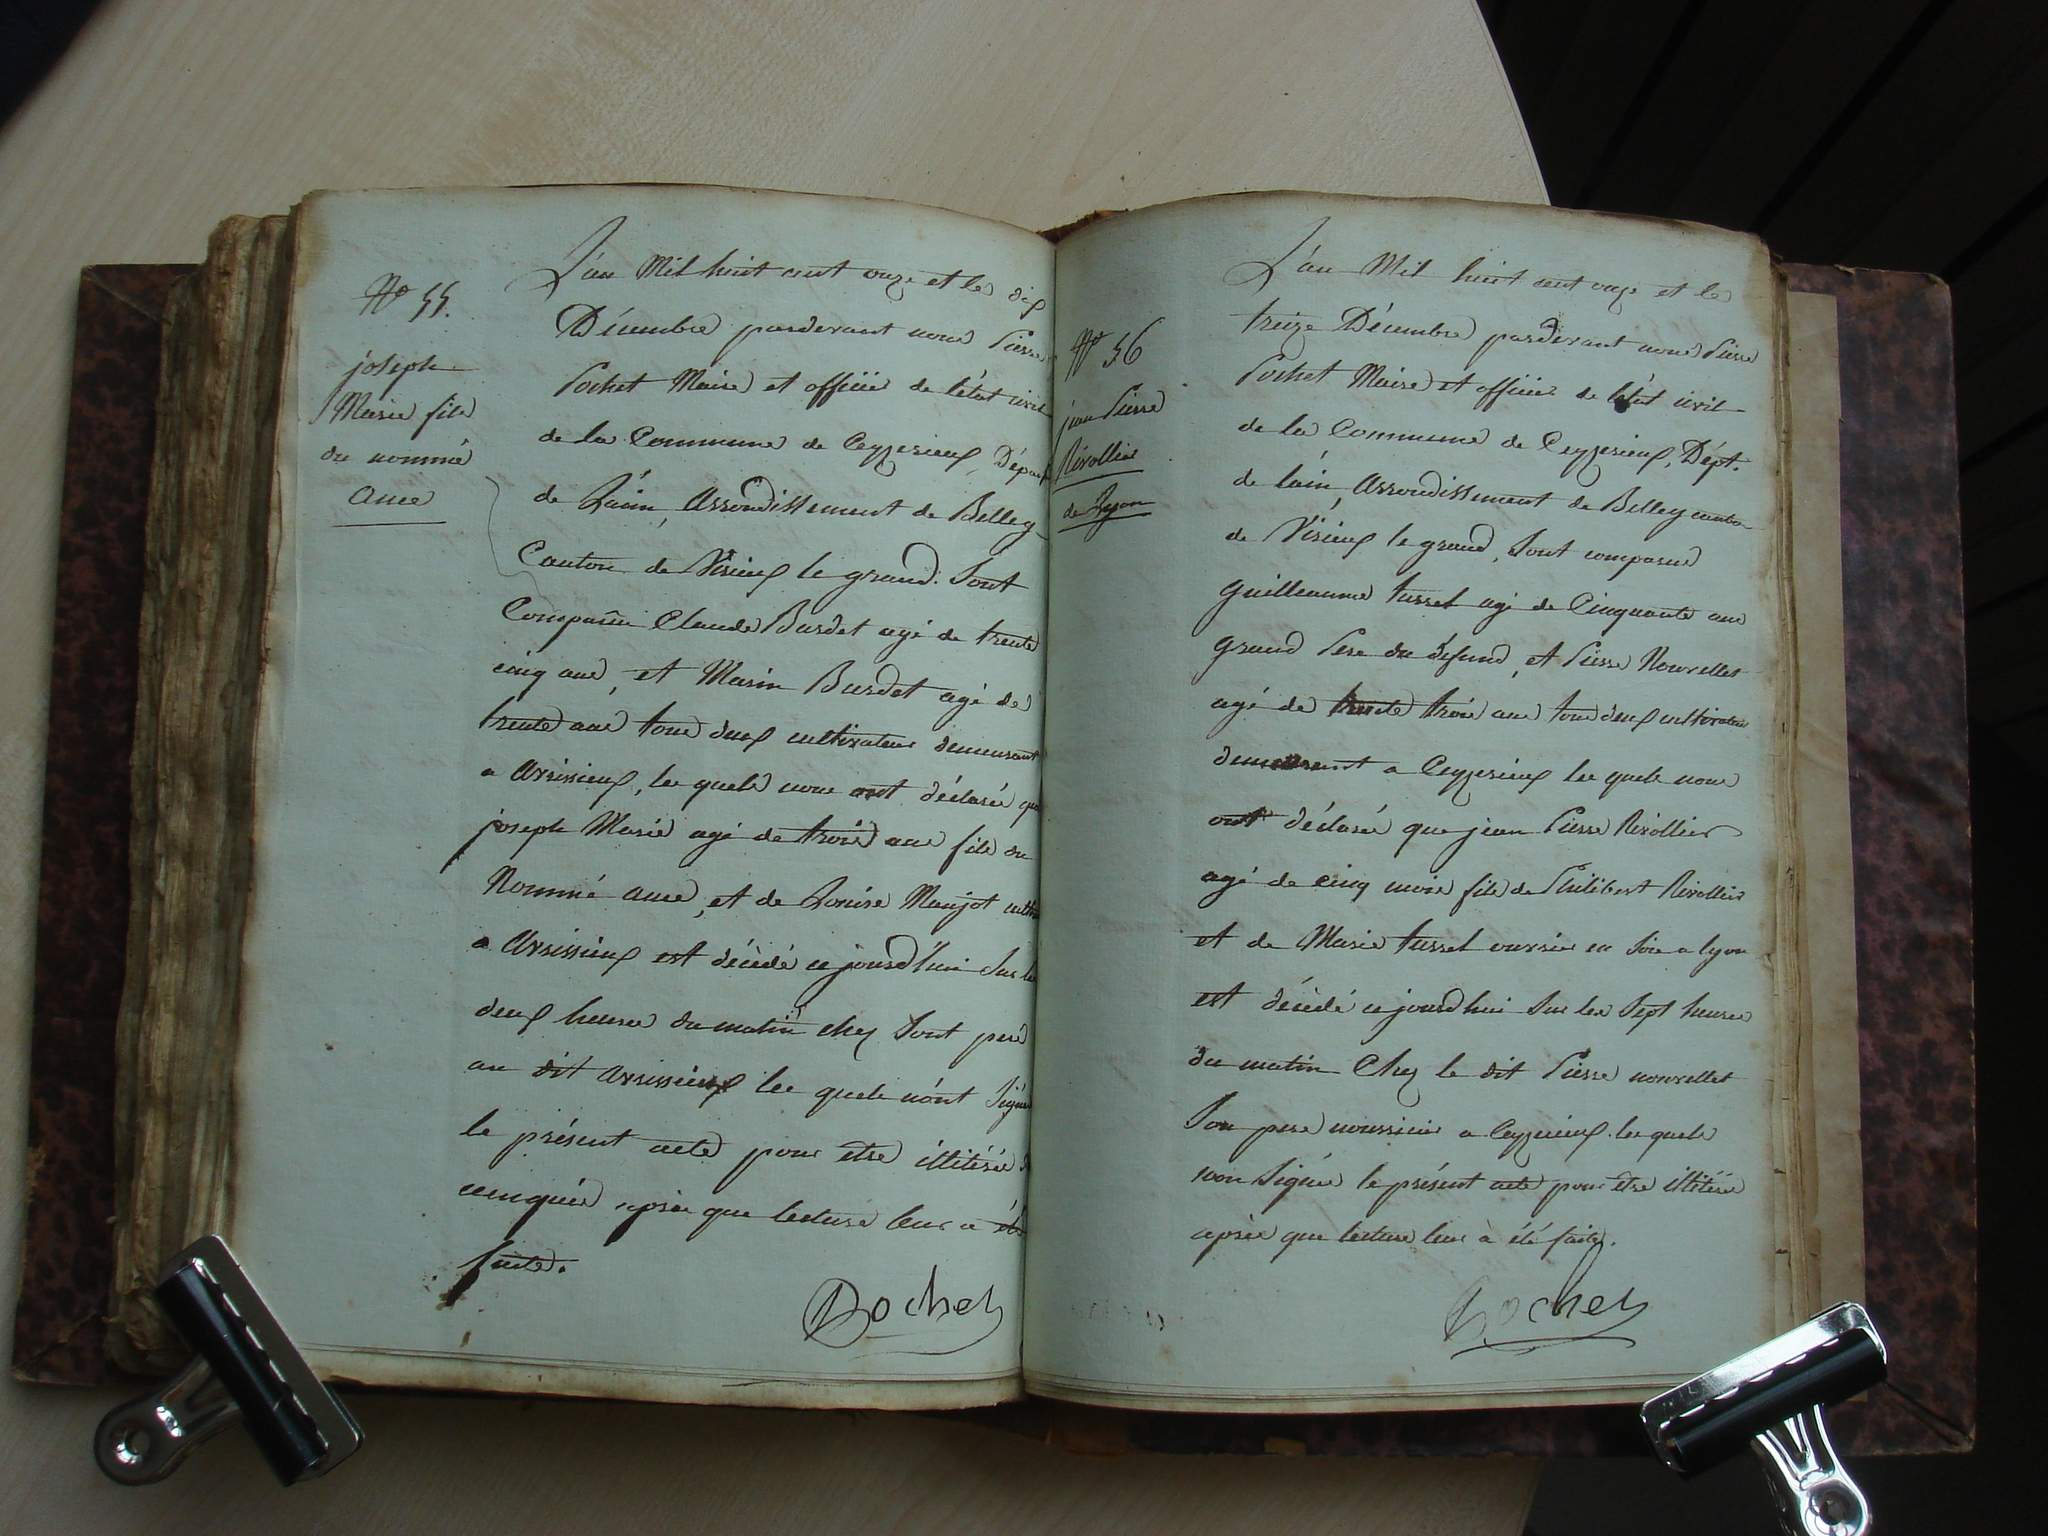 N° 55.
joseph
Marie fils
du nommé
Ame
L'an Mil huit cent onze et les dix
Décembre pardevant nous Pierre
Pochet Maire et officier de l'état civil
de la Commune de Ceyzerieux, Départ
de L'ain, Arrondissement de Belley
Canton de Virieux le grand. Sont
Comparûs Claude Burdet agé de trente
cinq ans, et Marin Burdet agé de
trente ans tous deux cultivateurs demeurant
a Avrissieux, les quels nous ont déclarés que
joseph Marie agé de trois ans fils du
Nommé ame, et de Louise Manjot
a Avrissieux est décédé ce jourd'hui sur les
deux heures du matin chez Sont pere
au dit avrissieux les quels n'ont Signé
le présent acte pour etre illitérés de
ce enquis après que lecture leur a été
faite.
Pochet
N° 56
jean Pierre
Rivollier
de Lyon
L'an Mil huit cent onze et les
treize Décembre pardevant nous Pierre
Pochet Maire et officier de l'état civil
de la Commune de Ceyzerieux, Dépt.
de l'ain, Arrondissement de Belley canton
de Virieux le grand, Sont comparus
guilleaume tusset agé de Cinquante ans
grand Pere du défund, et Pierre Nouvellet
agé de trente trois ans tous deux cultivateurs
demeurant a Ceyzerieux les quels nous
ont déclarés que jean Pierre Rivollier
agé de cinq mois fils de Philibert Rivollier
et de Marie tusset ouvrier en Soie a lyon
est décédé ce jourd'hui Sur les Sept heures
du matin Chez le dit Pierre nouvellet
Son pere nourricier a Ceyzerieux les quels
non Signés le présent acte pour etre illitérés
après que lecture leur à été faite.
Pochet